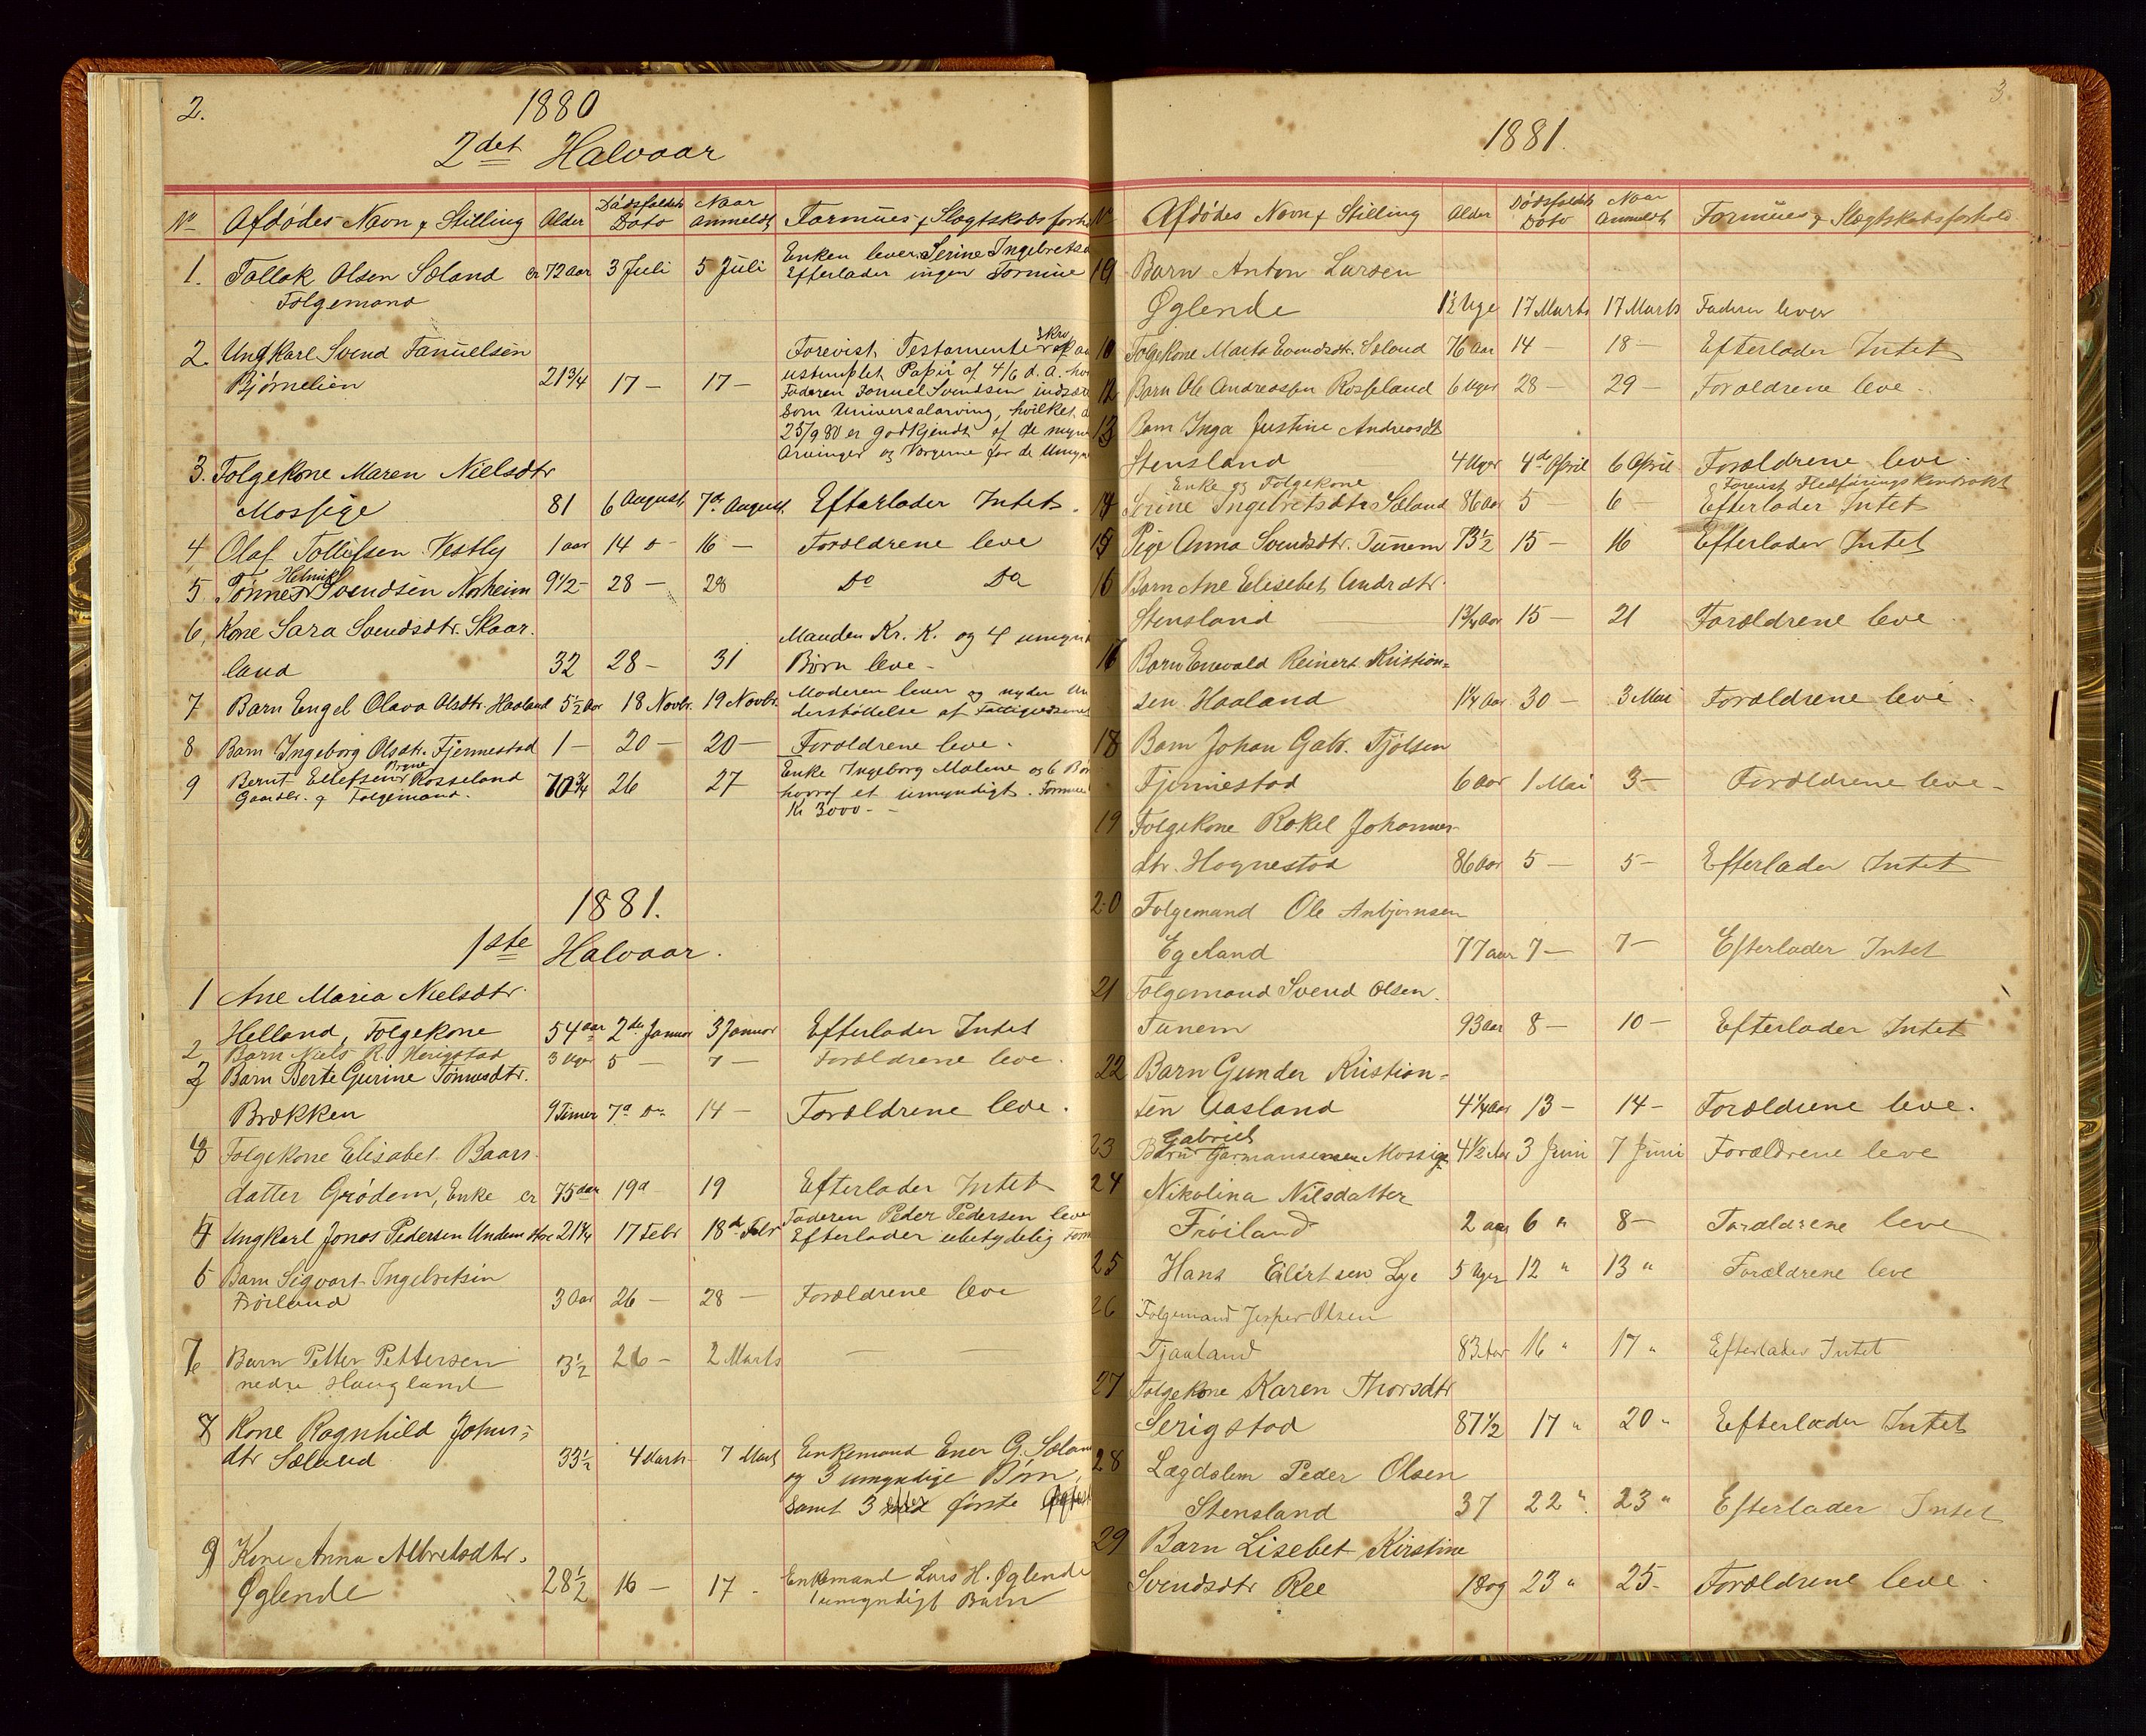 2.
1880
2det Halvaar
No Afdødes Navn & Stilling Alder Dødsfaldets Dato Naar anmeldt Formues & Slægtskabsforh
1. Tallak Olsen Sæland er 72 aar 3 Juli 5 Juli Enken lever Serine Ingebretsd
Folgemand Efterlader ingen Formue
2 Ungkarl Svend Tanuelsen
Bjørnelien 21 3/4 17 — 17 — Forevist Testamente
ustemplet Papir af 4/6 d. A.
Faderen Svendsen
som Universalarving, hvilket
25/9 80 er godkjendt af de
Arvinger og Vergerne for de
3. Folgekone Maren Nielsdtr
Mossige 81 6 August 7de August Efterlader Intet.
4 Olaf Tollefsen Vestly 1 aar 14 16 — Forældrene leve
5 Tønnes Henrik Svendsen Norheim 9 1/2 — 28 — 28 Do Do
6, Kone Sara Svendsdtr. Skaar.
land 32 28 — 31 Manden Kr. K. og 4
Børn leve —
7 Barn Engel Olava Olsdtr. Haaland 5 1/2 aar 18 Novbr. 19 Novbr. Moderen lever og nyder Un
derstøttelse af
8 Barn Ingeborg Olsdtr. Fjermestad 1 — 20 — 20 — Forældrene leve.
9 Bernt Ellefsen Bryne Rosseland 70 3/4 26 27 Enke Ingeborg Malene og 6
Gaardbr. & Folgemand. hvoraf et umyndigt. Formue
Kr 3000 —
1881.
1ste Halvaar.
1 Ane Maria Nielsdtr.
Helland, Folgekone 54 aar 2den Januar 3 Januar Efterlader Intet
2 Barn Niels R. Herigstad 3 Uger 5 — 7 — Forældrene leve.
3 Barn Berte Gurine Tønnesdtr.
Brækken 9 Timer 7de 14 — Forældrene leve.
Folgekone Elisabet Baars
datter Grødem, Enke er 75 aar 19 19 Efterlader Intet
Ungkarl Jonas Pedersen Undem 21 1/4 17 Febr 18de Febr Faderen Peder Pedersen leve
Efterlader ubetydelig
6 Barn Sigvart Ingebretsen
Frøiland 3 Aar 26 — 28 — Forældrene leve
7 Barn Petter Pettersen 3 1/2 26 — 2 Marts — —
nedre Haugland
8 Kone Ragnhild Johns=
dtr Sæland 33 1/2 4 Marts 7 Marts Enkemand Ener G.
og 3 umyndige Børn,
samt 3 første
9 Kone Anna Albretsdtr.
Øglende 28 1/2 16 — 17 — Enkemand Lars H. Øglende
1 umyndigt Barn
3
1881.
Afdødes Navn & Stilling Alder Dødsfaldets Dato Naar Anmeldt Formues & Slægtskabsforhold.
Barn Anton Larsen
Øglende 1 1/2 Uge 17 Marts 17 Marts Faderen lever
Folgekone Marta Svendsdtr. Sæland 76 aar 14 — 18 — Efterlader Intet
Barn Ole Andreassen Rosseland 6 Uger 28 — 29 — Forældrene leve.
13 Barn Inga Justine Andreasdt
Stensland 4 Uger 4de April 6 April Forældrene leve.
Enke og Folgekone
Serine Ingebretsdtr Sæland 86 aar 5 — 6 — Efterlader Intet
Pige Anna Svendsdtr. Tunem 73 1/2 15 — 16 Efterlader Intet
16 Barn Ane Elisebet Andrdtr.
Stensland 1 3/4 Aar 15 — 21 Forældrene leve
Barn Enevald Reinert Kristian=
sen Haaland 1 1/4 Aar 30 — 3 Mai Forældrene leve.
18 Barn Johan Gabr. Tjølsen
Fjermestad 6 aar 1 Mai 3 — Forældrene leve —
19 Folgekone Rakel Johannes-
dtr. Hognestad 86 aar 5 — 5 — Efterlader Intet
20 Folgemand Ole Anbjørnsen
Egeland 77 aar 7 — 7 — Efterlader Intet
21 Folgemand Svend Olsen.
Tunem 93 aar 8 — 10 — Efterlader Intet
22 Barn Gunder Kristian=
sen Aasland 4 1/4 Aar 13 — 14 — Forældrene leve.
23 Barn Gabriel Mossige 4 1/2 Aar 3 Juni 7 Juni Forældrene leve
24 Nikolina Nilsdatter
Frøiland 2 aar 6 " 8 — Forældrene leve
25 Hans Eilertsen Lye 5 Uger 12 " 13 " Forældrene leve
26 Folgemand Jesper Olsen
Tjaaland 83 Aar 16 " 17 " Efterlader Intet
27 Folgekone Karen Thorsdtr
Serigstad 87 1/2 17 " 20 " Efterlader Intet
28 Lægdslem Peder Olsen
Stensland 37 22 " 23 " Efterlader Intet
29 Barn Lisebet Kirstine
Svendsdtr Ree 1 Dag 23 " 25 — Forældrene leve.